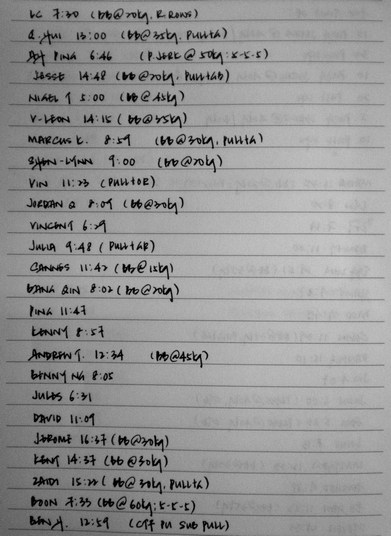 LC 7:30 (BB@20kg, R.ROWS)
Q.HUI 13:00 (BB@35kg, PULLTA)
PING 6:46 (P.JERK@50kg:5-5-5)
JESSE 14:48 (BB@20kg, PULLTAB)
NIGEL T 5:00 (BB@45kg)
V-LEON 14:15 (BB@35kg)
MARCUS K. 8:59 (BB@30kg, PULLTA)
SHEN-LYNN 9:00 (BB@20kg)
VIN 11:23 (PULLTOR)
JORDAN Q 8:09 (BB@30kg)
VINCENT 6:29
JULIA 9:48 (PULLTAB)
CANNES 11:42 (BB@15kg)
GANG QIN 8:02 (BB@20kg)
PING 11:47
KENNY 8:57
ANDREW T. 12:34 (BB@45kg)
BENNY NG 8:05
JULES 6:31
DAVID 11:09
JEROME 16:37 (BB@30kg)
KENT 14:37 (BB@30kg)
ZAIDI 15:22 (BB@30kg, PULLTA)
BOON 7:33 (BB@60kg:5-5-5)
BEN.H. 12:59 (CFF PU SUB PULL)